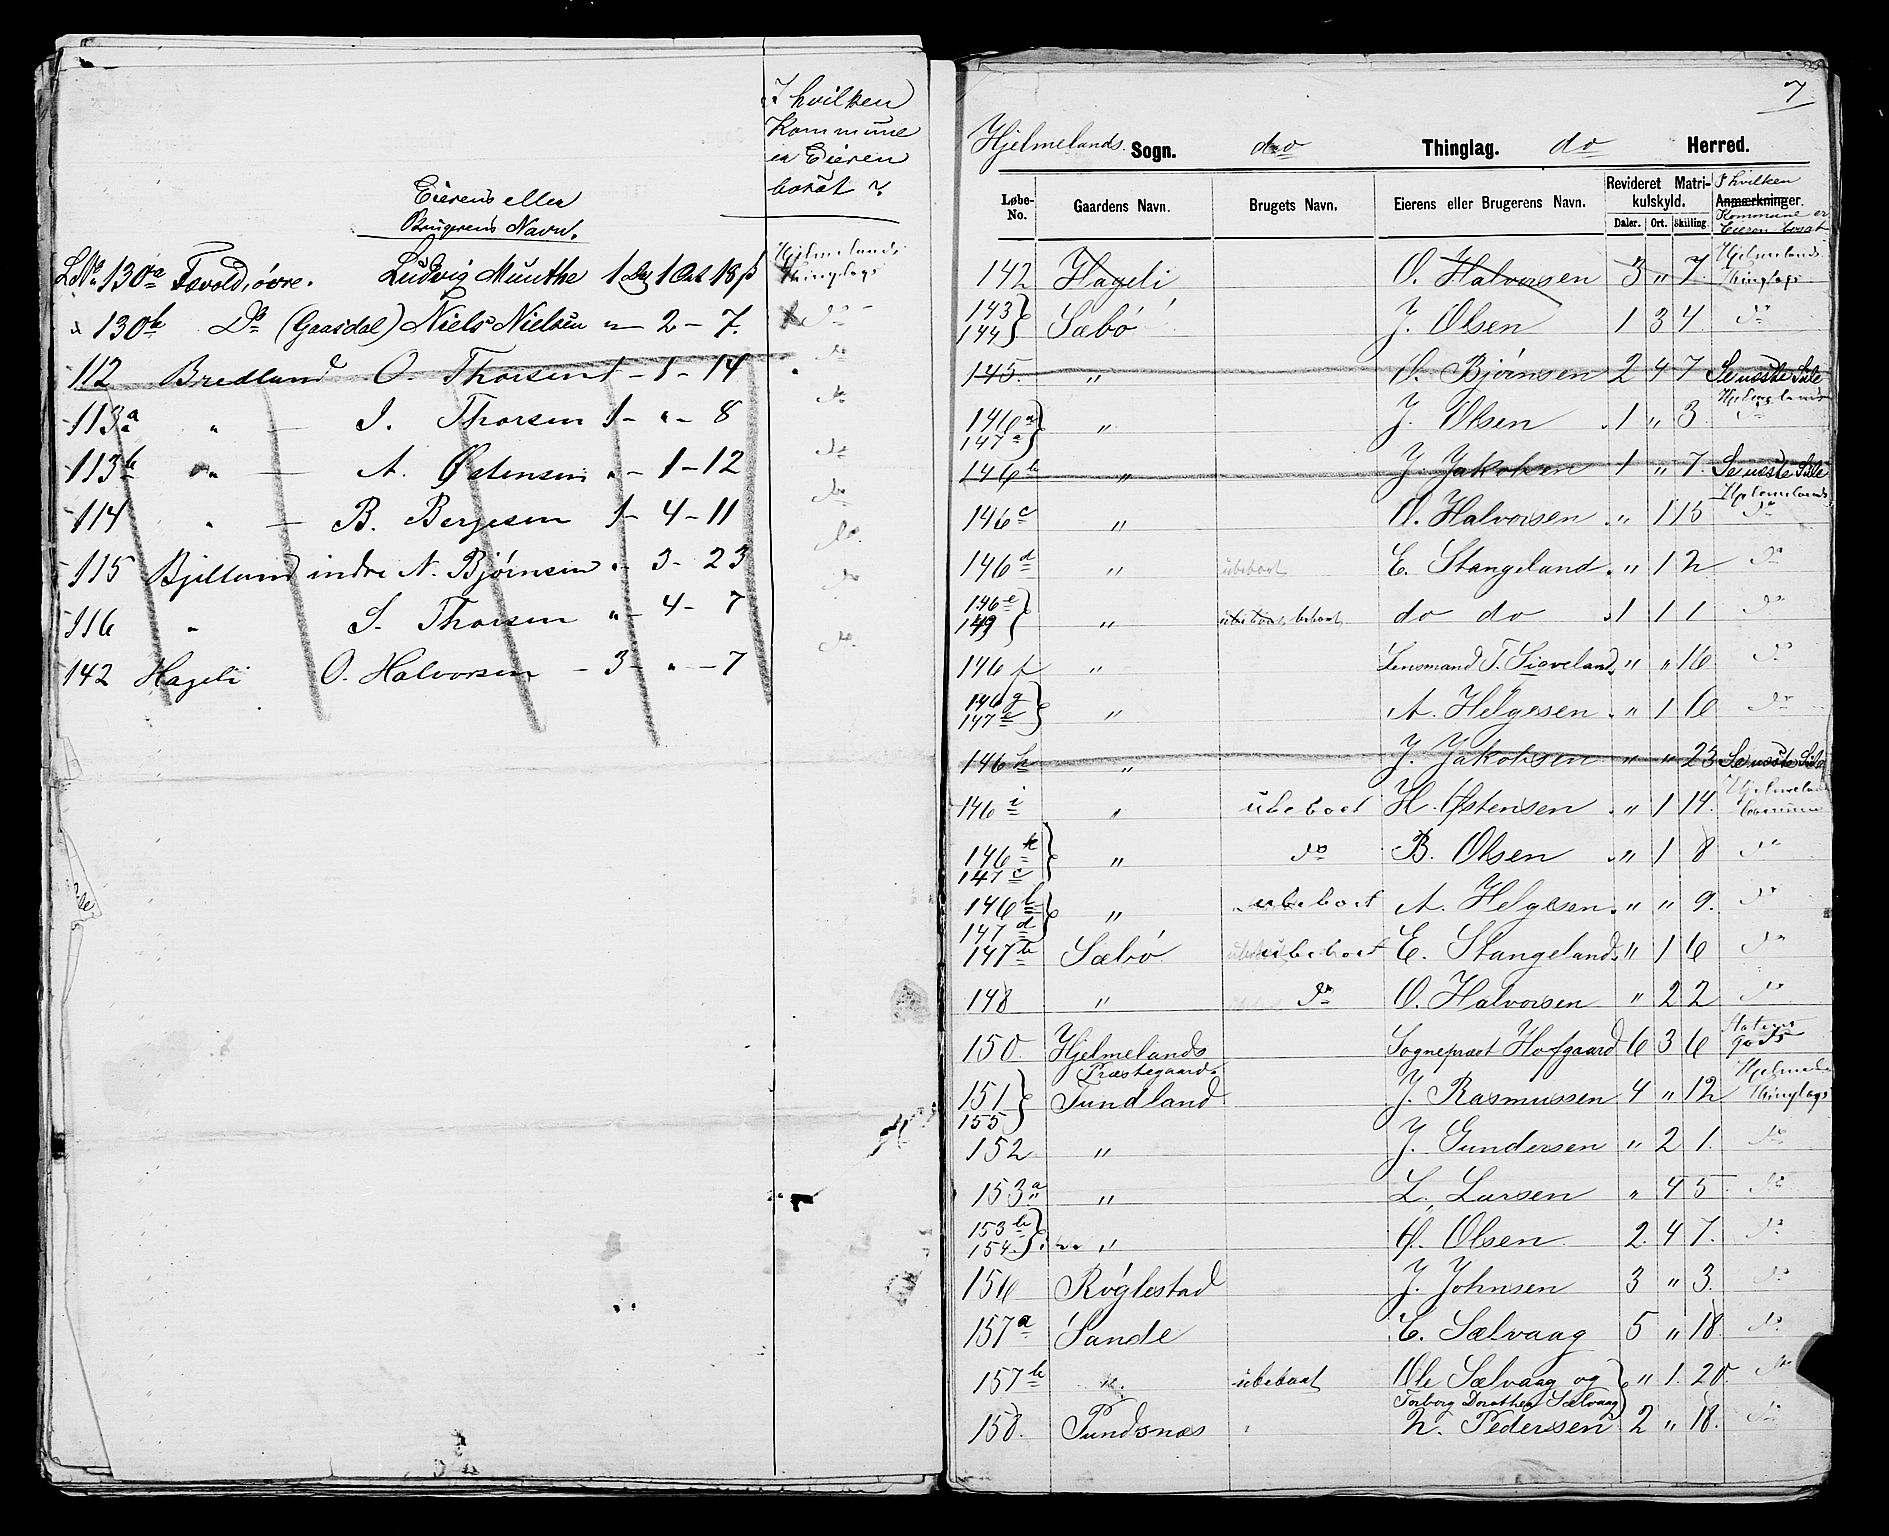 I hvilken
Kommune
er Eieren
bosat?
Eierens eller
Brugerens Navn.
L.No. 130a Tævold, øvre. Ludvig Munthe 1 Dlr 1 Ort 18 ß Hjelmelands Thinglags
130b Do (Gaasdal) Niels Nielsen " - 2 - 7. do
112 Bredland O. Thorsen 1 - 1 - 14 do
113a " — S. Thorsen 1 - " - 8 do
113b " — A. Østensen " - 1 - 12 do
114 " — B. Bergesen 1 - 4 - 11 do
115 Bjelland indre N. Bjørnsen " - 3 - 23 do
116 " S. Thorsen " - 4 - 7 do
142 Hageli O. Halvorsen - 3 - " - 7 do
7
Hjelmelands Sogn. do Thinglag. do Herred.
Løbe-No. Gaardens Navn. Brugets Navn. Eierens eller Brugerens Navn. Revideret Matrikulskyld. Daler. Ort. Skilling Anmærkninger. I hvilken Kommune er Eieren bosat
142 Hageli O. Halvorsen 3 " 7. Hjelmelands Thinglags
143 144 } Sæbø J. Olsen 1 3 4 do
145. " O. Bjørnsen 2 4 7 Se næste Side
146a 147a } " J. Olsen 1 " 3 Hjelmelands do
146b " J. Jakobsen 1 " 7 Se næste Side
146c " O. Halvorsen " 1 15 Hjelmelands do
146d " ubeboet E. Stangeland " 1 2 do
146e 149 } " ubeboet, beboet do do 1 1 1 do
146f " Lensmand T. Sieveland " " 16 do
146g 147e } " A. Helgesen " 1 6 do
146h " J. Jakobsen " " 23 Se næste Side
146i " ubeboet H. Østensen " 1 14. Hjelmeland Commune
146k 147c } " do B. Olsen " 1 8 do
146l 147d } " ubeboet A. Helgesen " " 9. do
147b Sæbø ubeboet E. Stangeland " 1 6 do
148 " do O. Halvorsen " 2 2 do
150. Hjelmelands Præstegaard. Sognepræst Hofgaard 6 3 6 Statens Gods
151 155 } Tundland J. Rasmussen 4 " 12 Hjelmel. Thinglags
152 " J. Gundersen " 2 1. do
153a " L. Larsen " 4 5 do
153b 154. } " O. Olsen 2. 4 7. do
156 Røglestad J. Johnsen 3 " 3. do
157a Sande E. Sælvaag 5 " 18 do
157b " ubeboet Ole Sælvaag og " 1. 20. do
Torborg Dorothea Sælvaag
158. Pundsnæs N. Pedersen 2 " 18. do